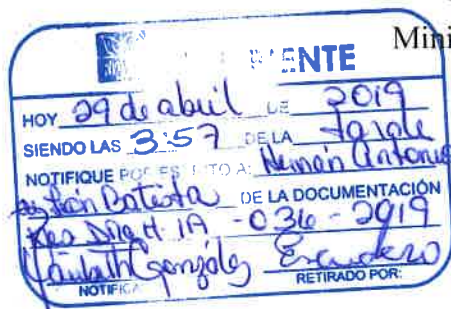 Mini
ENTE
HOY 29 de abril DE 2019
SIENDO LAS 3:57 DE LA tarde
NOTIFIQUE POR ESCRITO A: Hernán Antonio
Batista DE LA DOCUMENTACIÓN
IA-036-2019
González Escudero
NOTIFIC RETIRADO POR: